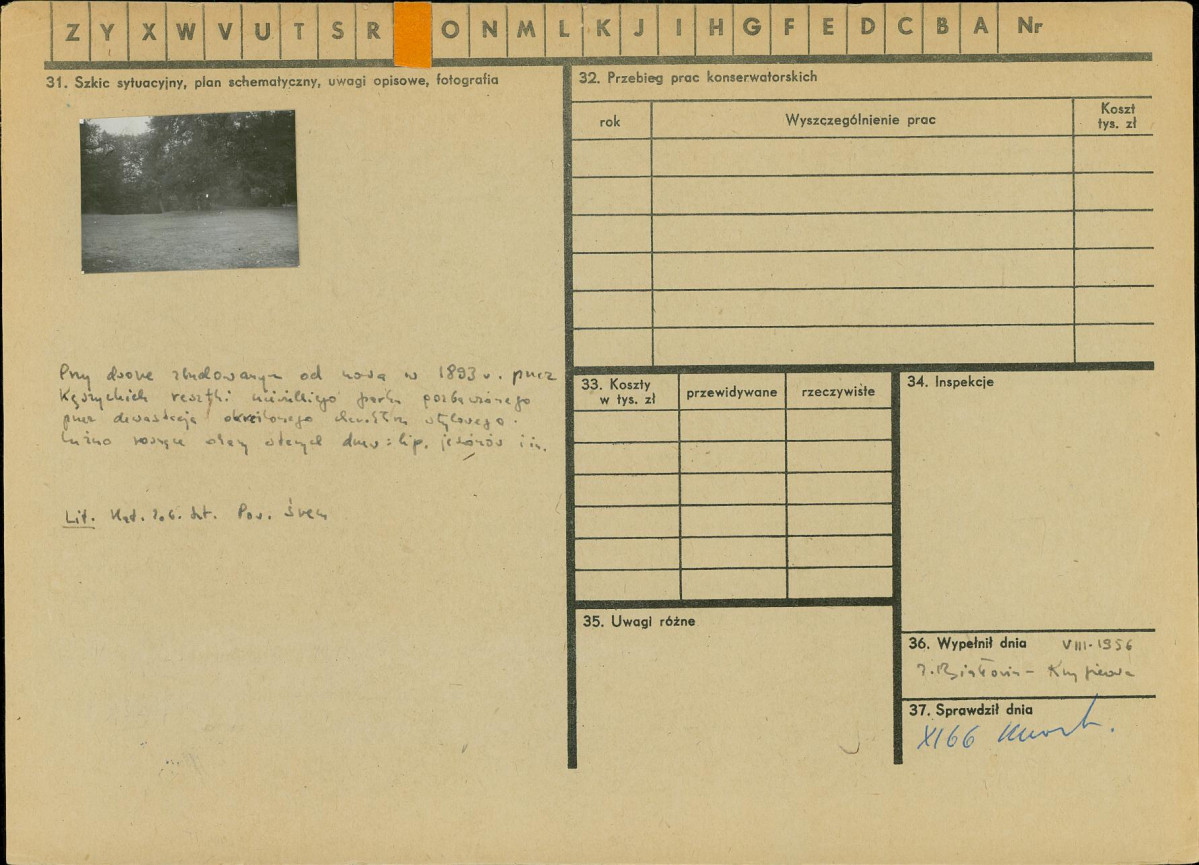 Z Y X W V U T S R O N M L K J I H G F E D C B A Nr
31. Szkic sytuacyjny, plan schematyczny, uwagi opisowe, fotografia
Przy dworze zbudowanym od nowa w 1893 r. przez
Kęszyckich resztki niewielkiego parku pozbawionego
przez dewastację określonego charakteru stylowego.
Luźno rosnące okazy starych drzew: lip, jesionów i in.
Lit. Kat. Zab. Szt. Pow. Śrem
32. Przebieg prac konserwatorskich
rok
Wyszczególnienie prac
Koszt
tys. zł
33. Koszty
w tys. zł
przewidywane
rzeczywiste
34. Inspekcje
35. Uwagi różne
36. Wypełnił dnia VIII-1956
37. Sprawdził dnia
XI 66